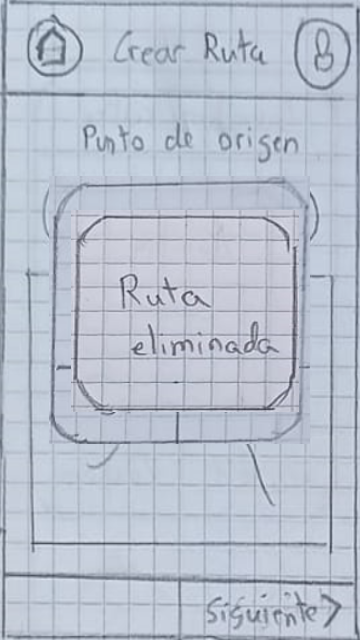 Crear Ruta
Punto de origen
Ruta
eliminada
Siguiente